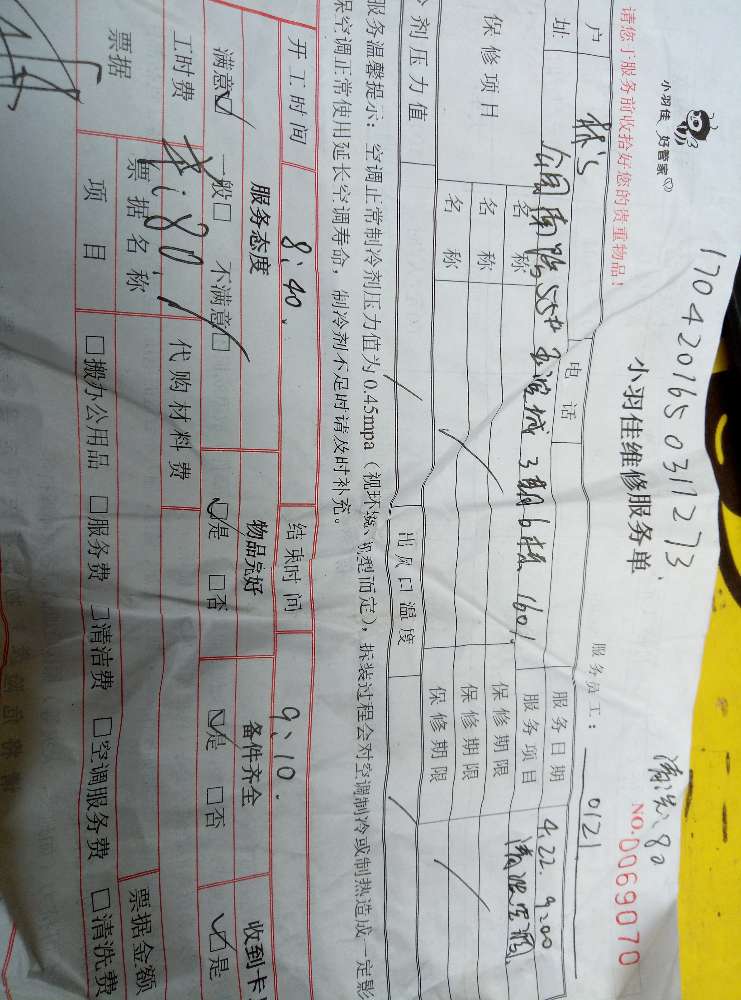 小羽佳 好管家
170420165031273
清洗:80
小羽佳维修服务单
NO.0069070
请您于服务前收拾好您的贵重物品!
服务员工: 0121
户
电话
服务日期 4.22. 9:00
址
服务项目
保修项目 名称 保修期限
名称 保修期限
名称 保修期限
冷剂压力值
出风口温度
服务温馨提示:空调正常制冷剂压力值为0.45mpa(视环境、机型而定),拆装过程会对空调制冷或制热造成一定影
保空调正常使用延长空调寿命,制冷剂不足时请及时补充。
开工时间 8:40. 结束时间 9:10.
服务态度 物品完好 备件齐全 收到卡
满意☑ 一般□ 不满意□ ☑是 □否 ☑是 □否 ☑是
工时费 代购材料费
票据 票据名称 票据金额
项目 □搬办公用品 □服务费 □清洁费 □空调服务费 □清洗费